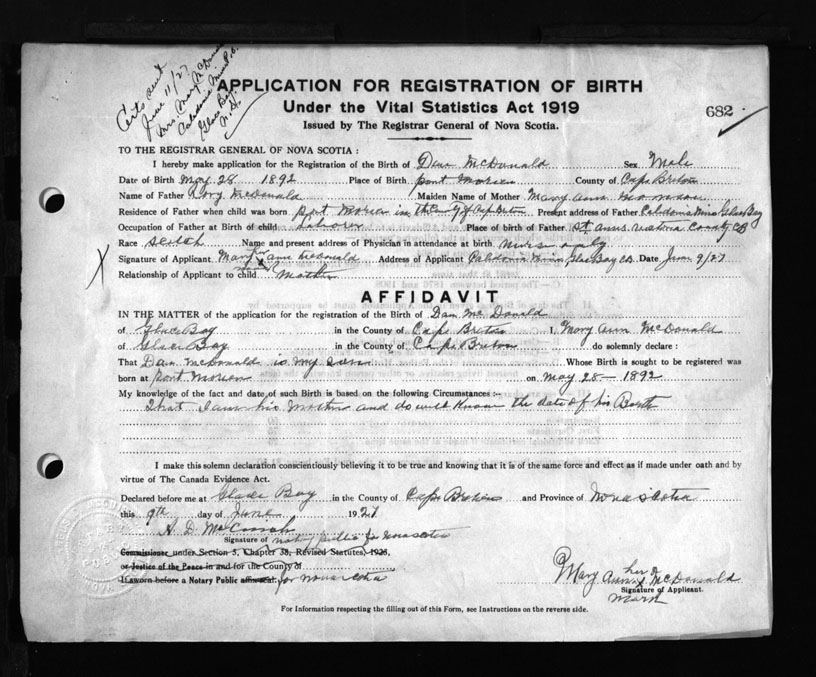 Certs sent
June 11/27
Mrs. Mary McDonald
Caledonia Mines P.O.
Glace Bay
N.S.
APPLICATION FOR REGISTRATION OF BIRTH
Under the Vital Statistics Act 1919
682
Issued by The Registrar General of Nova Scotia.
TO THE REGISTRAR GENERAL OF NOVA SCOTIA :
I hereby make application for the Registration of the Birth of Dan McDonald Sex Male
Date of Birth May 28 1892 Place of Birth port Morien County of Cape Breton
Name of Father Rory McDonald Maiden Name of Mother Mary Ann
Residence of Father when child was born port Morien in the County of Cape Breton Present address of Father Caledonia Mines Glace Bay
Occupation of Father at Birth of child Laborer Place of birth of Father St. Anns Victoria County CB
Race Scotch Name and present address of Physician in attendance at birth nurse only
Signature of Applicant Mary Ann McDonald Address of Applicant Caledonia Mines, Glace Bay CB. Date June 9/27
Relationship of Applicant to child Mother
X
AFFIDAVIT
IN THE MATTER of the application for the registration of the Birth of Dan McDonald
of Glace Bay in the County of Cape Breton I, Mary Ann McDonald
of Glace Bay in the County of Cape Breton do solemnly declare :
That Dan McDonald is my son Whose Birth is sought to be registered was
born at Port Morien on May 28 - 1892
My knowledge of the fact and date of such Birth is based on the following Circumstances :-
That I am his Mother and do well know the date of his Birth
I make this solemn declaration conscientiously believing it to be true and knowing that it is of the same force and effect as if made under oath and by
virtue of The Canada Evidence Act.
Declared before me at Glace Bay in the County of Cape Breton and Province of Nova Scotia
this 9th day of June 1927
A. D. McCuish
Signature of notary public for Nova scotia
Commissioner under Section 5, Chapter 38, Revised Statutes, 1923,
or Justice of the Peace in and for the County of
If sworn before a Notary Public affix seal: for nova scotia
her
Mary Ann X McDonald
Signature of Applicant.
Mark
For Information respecting the filling out of this Form, see Instructions on the reverse side.